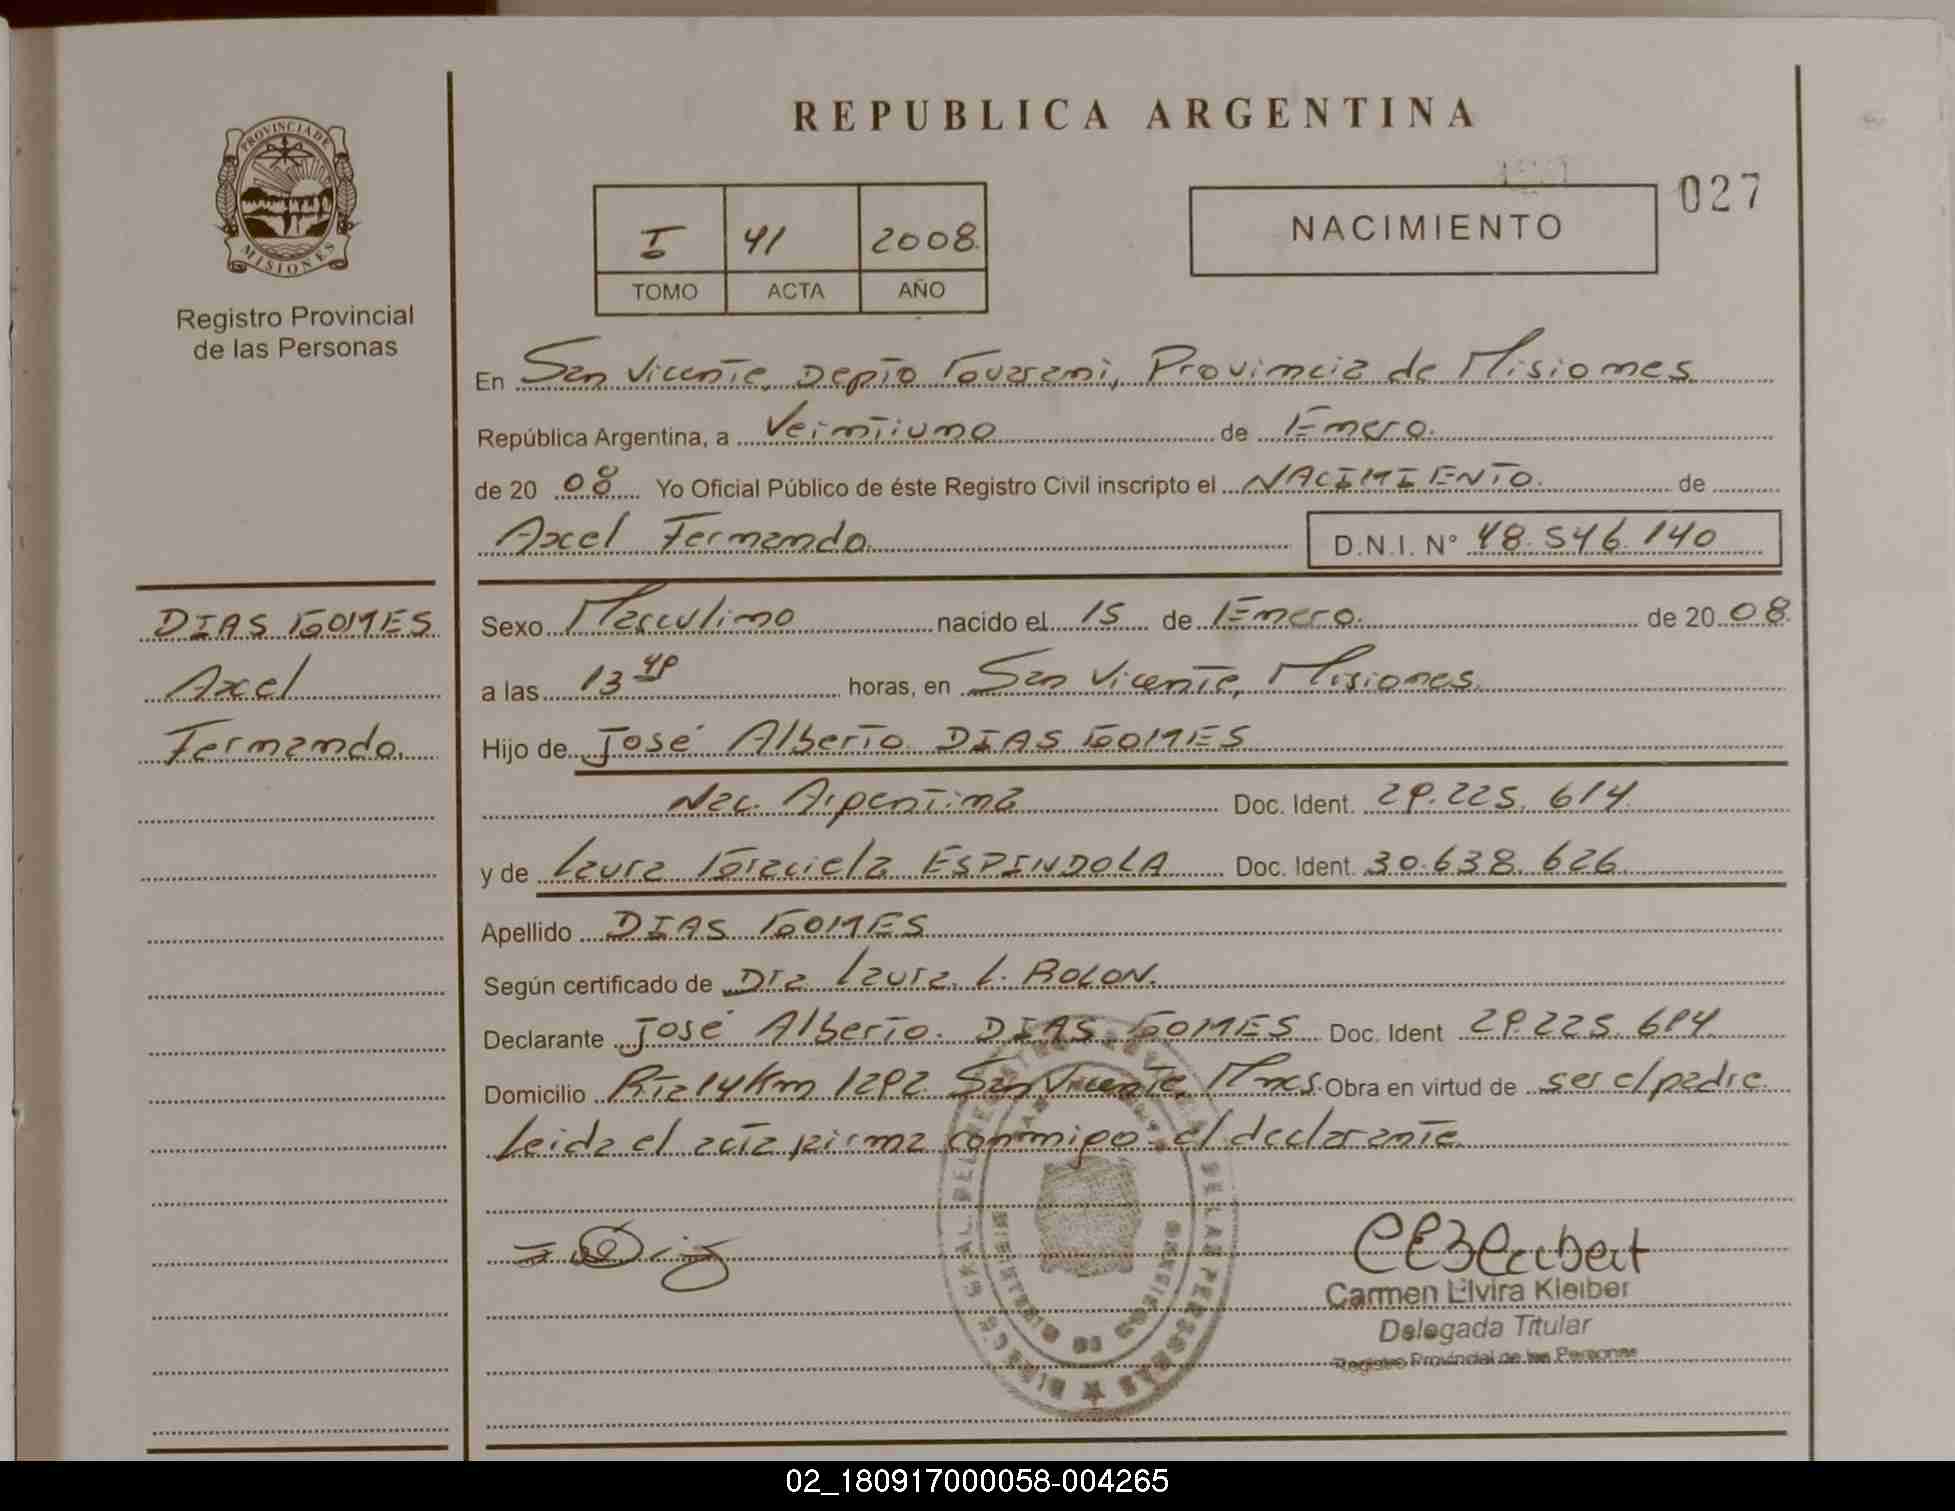 REPUBLICA ARGENTINA
PROVINCIA DE
MISIONES
Registro Provincial
de las Personas
I 41 2008
TOMO ACTA AÑO
NACIMIENTO
027
En San Vicente, Depto Guarani, Provincia de Misiones
República Argentina, a Veintiuno de Enero.
de 20 08 Yo Oficial Público de éste Registro Civil inscripto el NACIMIENTO. de
Axel Fernando. D.N.I. N° 48.546.140
DIAS GOMES
Axel
Fernando.
Sexo Masculino nacido el 15 de Enero. de 20 08.
a las 13 horas, en San Vicente, Misiones.
Hijo de José Alberto DIAS GOMES
Nac. Argentina Doc. Ident. 29.225.614
y de Laura Graciela ESPINDOLA Doc. Ident. 30.638.626
Apellido DIAS GOMES
Según certificado de Dra Laura L. ROLON.
Declarante José Alberto. DIAS GOMES Doc. Ident 29.225.614
Domicilio Rta 14 Km 1292 San Vicente, Mnes. Obra en virtud de ser el padre
Leida el acta firma conmigo el declarante
Carmen Elvira Kleiber
Delegada Titular
Registro Provincial de las Personas
02_180917000058-004265